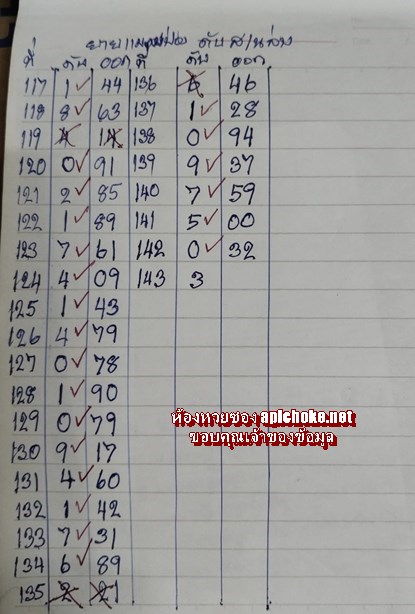 ที่ ดับ ออก ที่ ดับ ออก
117 1 ✓ 44 136 6 46
118 8 ✓ 63 137 1 ✓ 28
119 4 14 138 0 ✓ 94
120 0 ✓ 91 139 9 ✓ 37
121 2 ✓ 85 140 7 ✓ 59
122 1 ✓ 89 141 5 ✓ 00
123 7 ✓ 61 142 0 ✓ 32
124 4 ✓ 09 143 3
125 1 ✓ 43
126 4 ✓ 79
127 0 ✓ 78
128 1 ✓ 90
129 0 ✓ 79
ห้องหวยซอง apichoke.net
ขอบคุณเจ้าของข้อมูล
130 9 ✓ 17
131 4 ✓ 60
132 1 ✓ 42
133 7 ✓ 31
134 6 ✓ 89
135 2 21